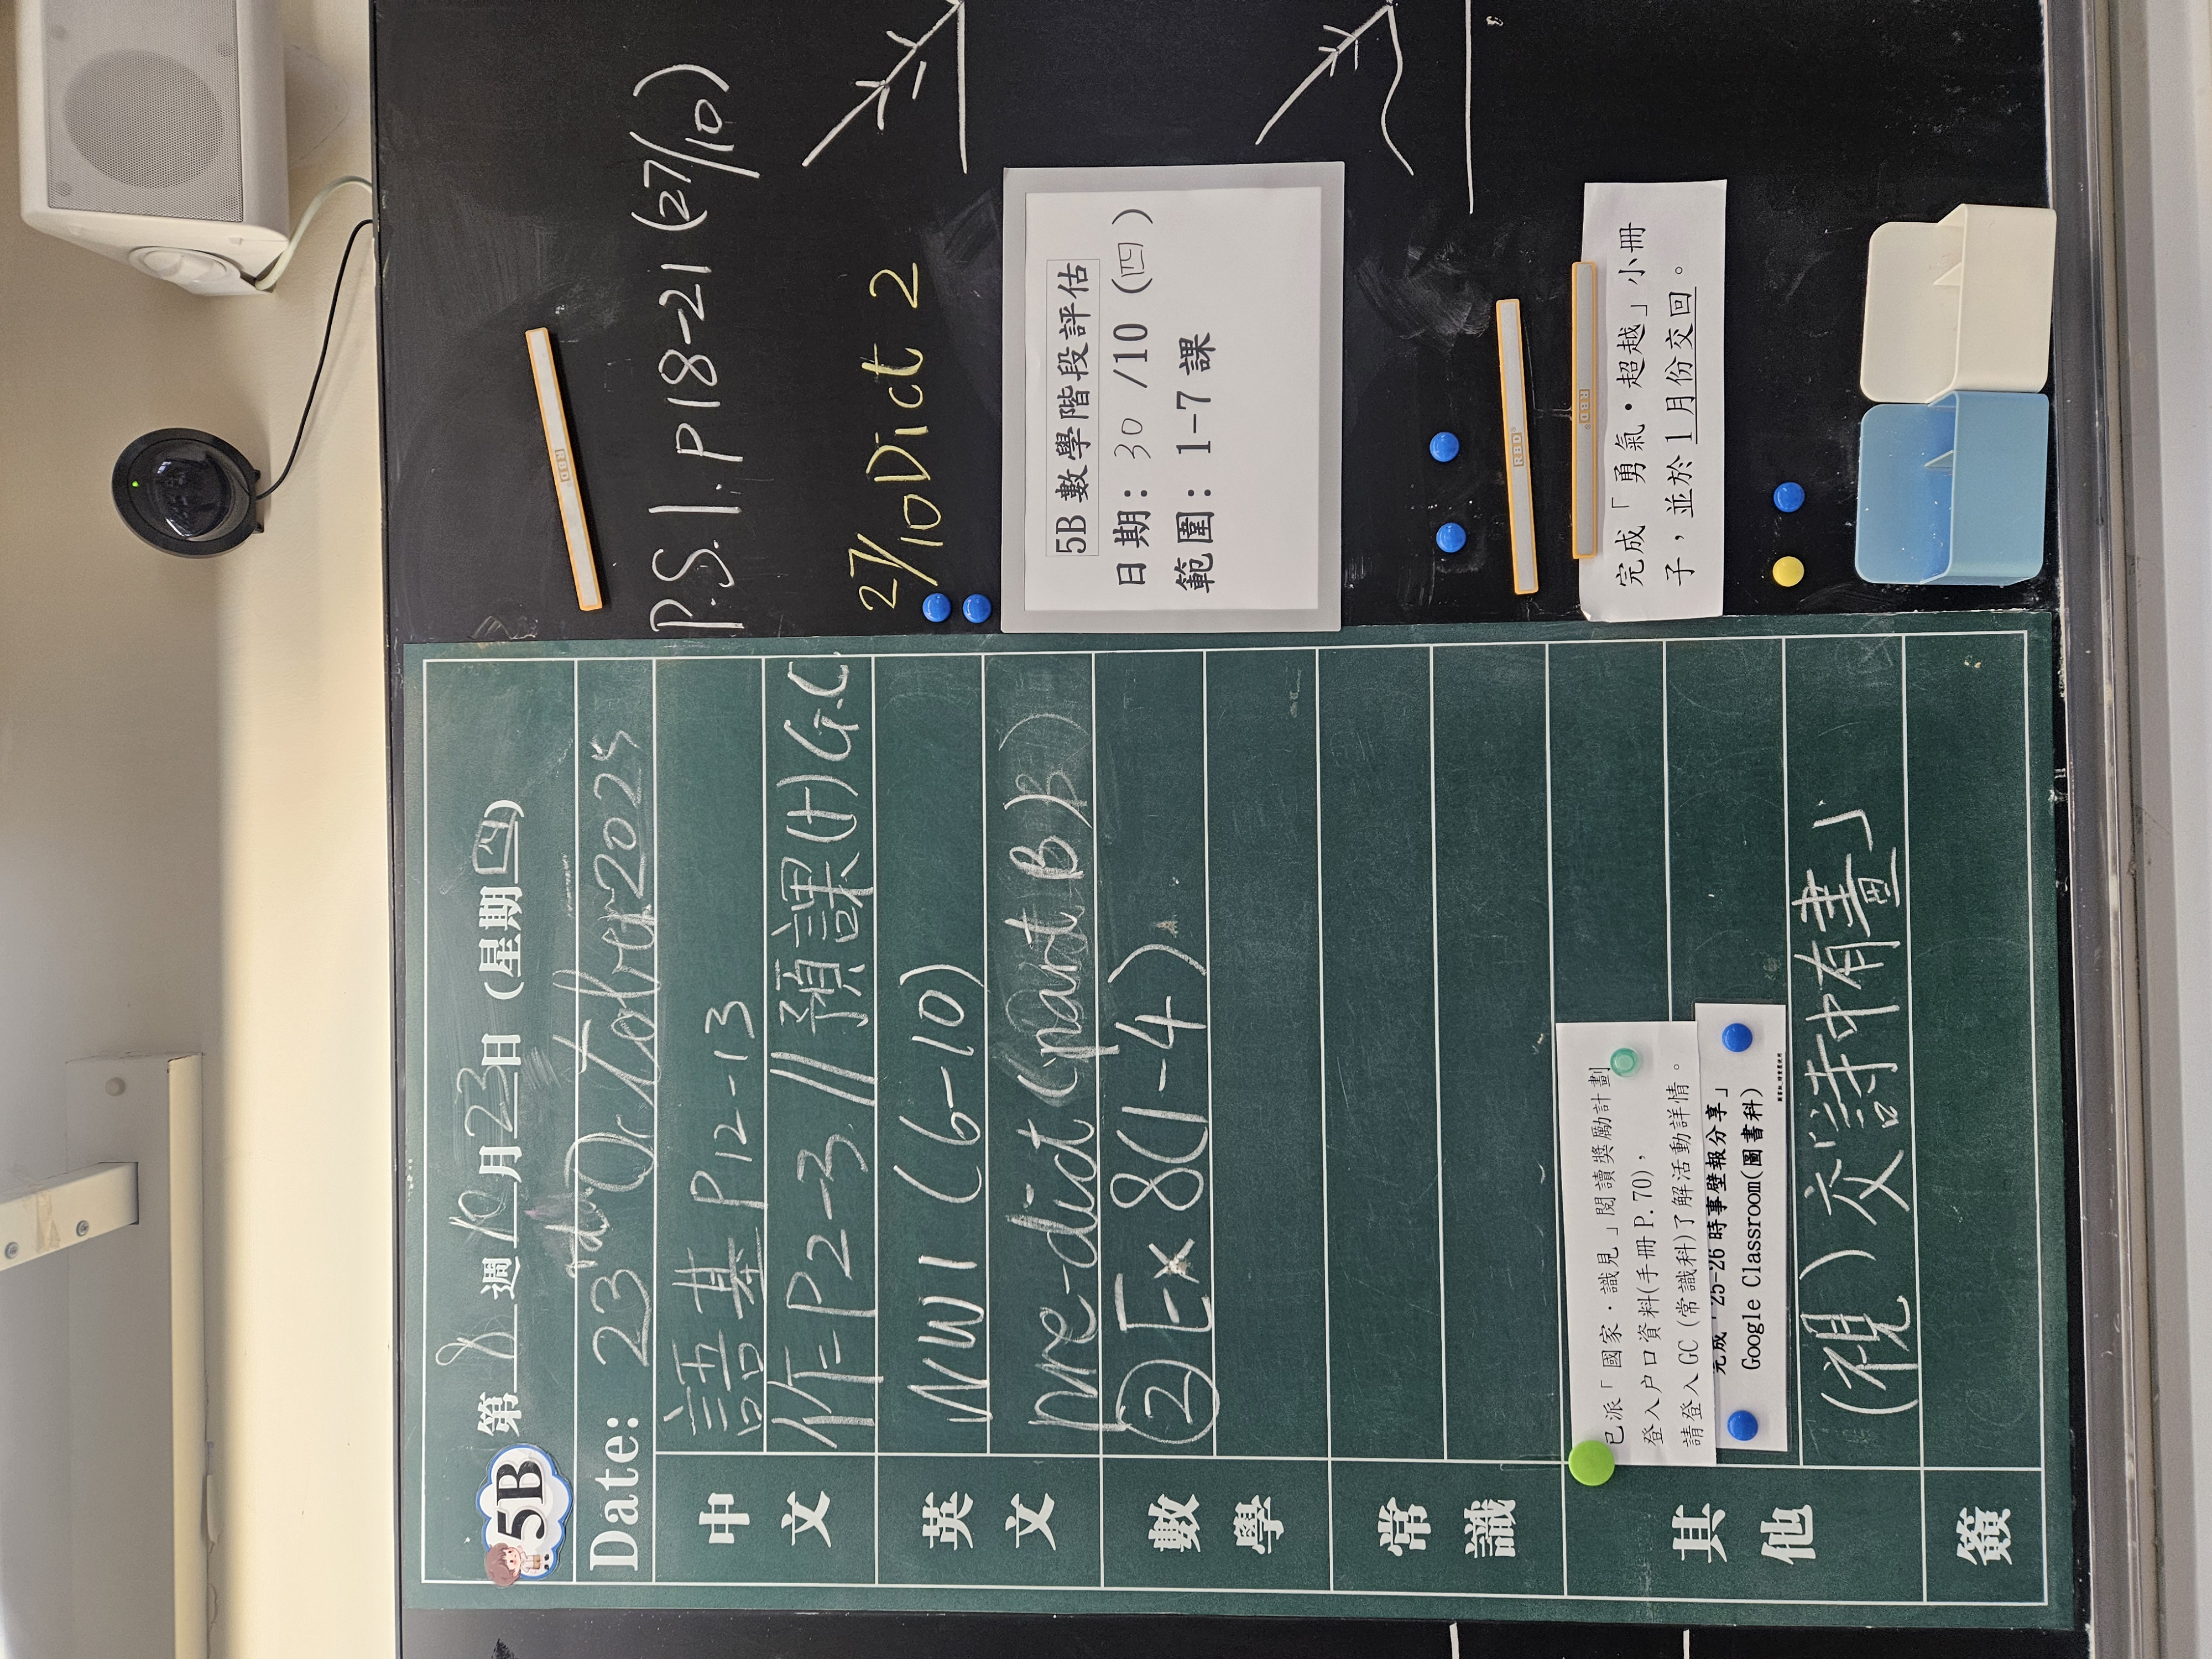 5B
第 8 週 10 月 23 日 (星期 四)
Date: 23rd October 2025
中文
語基 P12-13
作=P2-3 // 預課(十) G.C.
英文
NW1 (6-10)
pre-dict (part B)
數學
② Ex 8(1-4)
常識
其他
已派「國家・識見」閱讀獎勵計劃
登入户口資料(手冊 P.70)，
請登入 GC (常識科)了解活動詳情。
完成「25-26 時事壁報分享」
Google Classroom(圖書科)
(視) 交「詩中有畫」
簽
P.S.1. P18-21 (27/10)
27/10 Dict 2
5B 數學階段評估
日期: 30 /10 (四)
範圍: 1-7 課
RBD
RBD
RBD
完成「勇氣・超越」小冊
子，並於 1 月份交回。